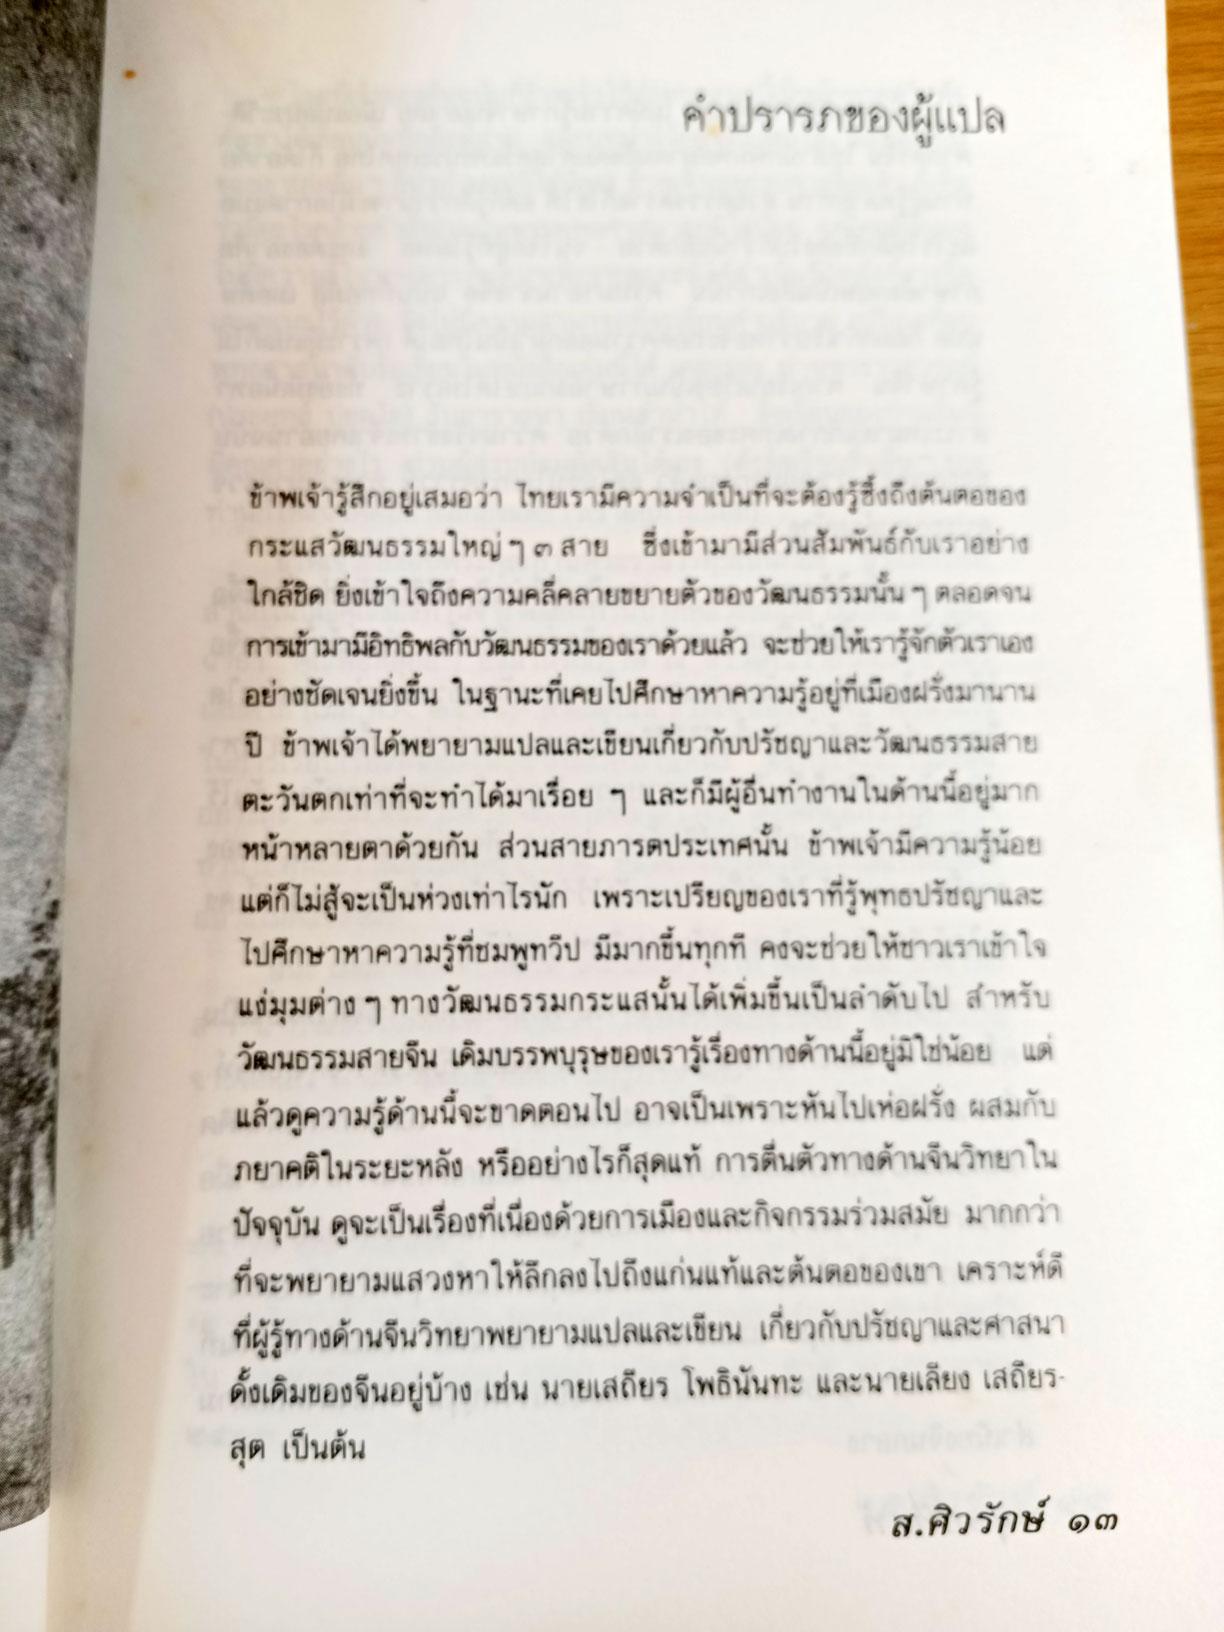 คำปรารภของผู้แปล
ข้าพเจ้ารู้สึกอยู่เสมอว่า ไทยเรามีความจำเป็นที่จะต้องรู้ซึ้งถึงต้นตอของ
กระแสวัฒนธรรมใหญ่ ๆ ๓ สาย ซึ่งเข้ามามีส่วนสัมพันธ์กับเราอย่าง
ใกล้ชิด ยิ่งเข้าใจถึงความคลี่คลายขยายตัวของวัฒนธรรมนั้น ๆ ตลอดจน
การเข้ามามีอิทธิพลกับวัฒนธรรมของเราด้วยแล้ว จะช่วยให้เรารู้จักตัวเราเอง
อย่างชัดเจนยิ่งขึ้น ในฐานะที่เคยไปศึกษาหาความรู้อยู่ที่เมืองฝรั่งมานาน
ปี ข้าพเจ้าได้พยายามแปลและเขียนเกี่ยวกับปรัชญาและวัฒนธรรมสาย
ตะวันตกเท่าที่จะทำได้มาเรื่อย ๆ และก็มีผู้อื่นทำงานในด้านนี้อยู่มาก
หน้าหลายตาด้วยกัน ส่วนสายภารตประเทศนั้น ข้าพเจ้ามีความรู้น้อย
แต่ก็ไม่สู้จะเป็นห่วงเท่าไรนัก เพราะเปรียญของเราที่รู้พุทธปรัชญาและ
ไปศึกษาหาความรู้ที่ชมพูทวีป มีมากขึ้นทุกที คงจะช่วยให้ชาวเราเข้าใจ
แง่มุมต่าง ๆ ทางวัฒนธรรมกระแสนั้นได้เพิ่มขึ้นเป็นลำดับไป สำหรับ
วัฒนธรรมสายจีน เดิมบรรพบุรุษของเรารู้เรื่องทางด้านนี้อยู่มิใช่น้อย แต่
แล้วดูความรู้ด้านนี้จะขาดตอนไป อาจเป็นเพราะหันไปเห่อฝรั่ง ผสมกับ
ภยาคติในระยะหลัง หรืออย่างไรก็สุดแท้ การตื่นตัวทางด้านจีนวิทยาใน
ปัจจุบัน ดูจะเป็นเรื่องที่เนื่องด้วยการเมืองและกิจกรรมร่วมสมัย มากกว่า
ที่จะพยายามแสวงหาให้ลึกลงไปถึงแก่นแท้และต้นตอของเขา เคราะห์ดี
ที่ผู้รู้ทางด้านจีนวิทยาพยายามแปลและเขียน เกี่ยวกับปรัชญาและศาสนา
ดั้งเดิมของจีนอยู่บ้าง เช่น นายเสถียร โพธินันทะ และนายเลียง เสถียร-
สุต เป็นต้น
ส.ศิวรักษ์ ๑๓